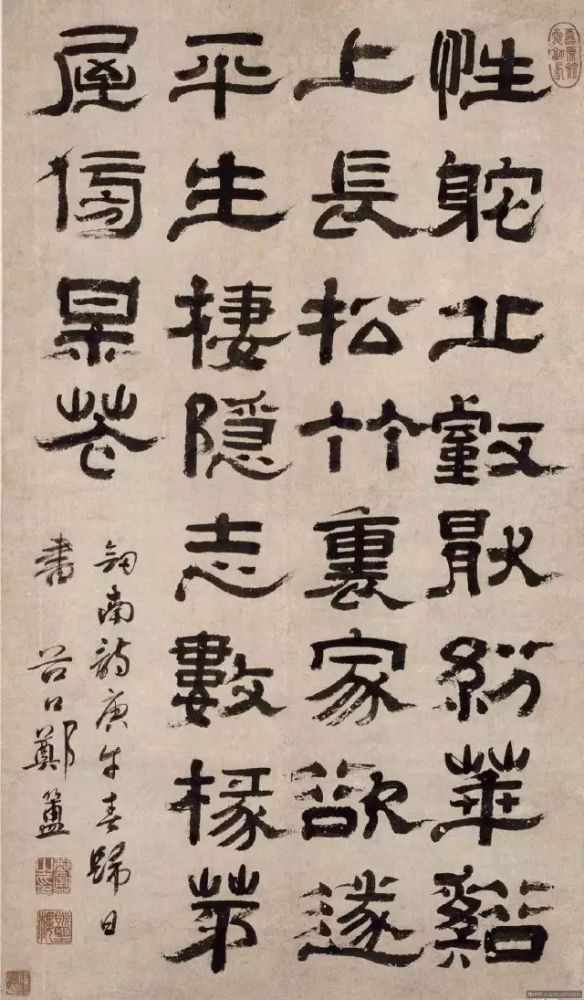 性躭丘壑猒紛華谿
上長松竹裏家欲遂
平生棲隱志數椽茅
屋傍某花
劎南詩庚午春歸日
書 谷口鄭簠